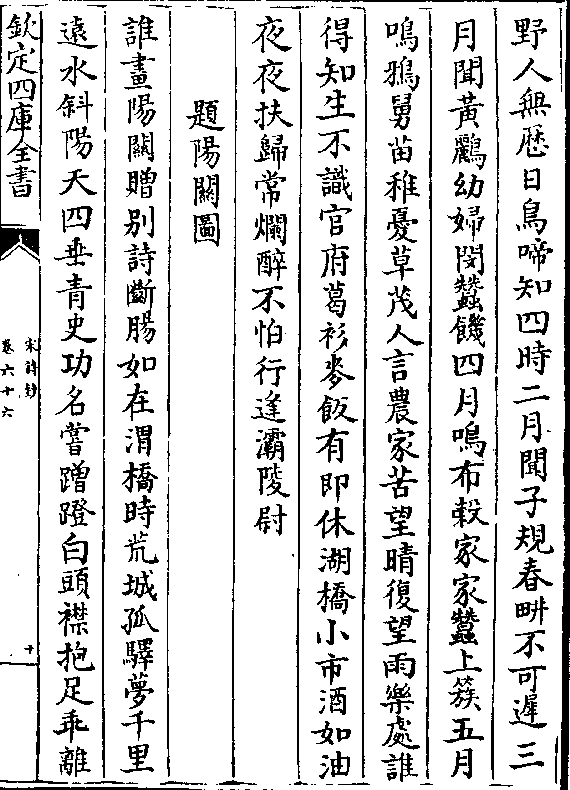 野人無厯日鳥啼知四時二月聞子規春畊不可遲三
月聞黃鸝幼婦閔蠶饑四月鳴布榖家家蠶上簇五月
鳴鵶舅苗稚憂草茂人言農家苦望晴復望雨樂處誰
得知生不識官府葛衫麥飯有即休湖橋小市酒如油
夜夜扶歸常爛醉不怕行逢灞陵尉
題陽關圖
誰畫陽關贈别詩斷腸如在渭橋時荒城孤驛夢千里
遠水斜陽天四垂青史功名嘗蹭蹬白頭襟抱足乖離
欽定四庫全書
宋詩鈔
卷六十六
十